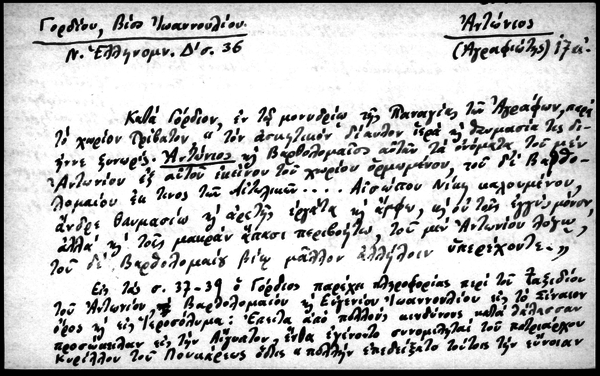 Γορδίου, Βίος Ἰωαννουλίου.
Ν. Ἑλληνομν. Δ' σ. 36
Ἀντώνιος
(Ἀγραφιώτης) 17α.
Κατὰ Γόρδιον, ἐν τῷ μονυδρίῳ τῆς Παναγίας τῶν Ἀγράφων, παρὰ
τὸ χωρίον Τρίβατον "τὸν ἀσκητικὸν διήνθον ἱερά
Ἀντώνιος κ Βαρθολομαῖος αὐτῶν τὰ ὀνόματα τοῦ μὲν
Ἀντωνίου ἐξ αὐτοῦ ἐκείνου τοῦ χωρίου ὁρμωμένου, τοῦ δὲ Βαρθο-
λομαίου ἔκ τινος τῶν .... Αἰσώπου καλουμένου,
ἄνδρε θαυμασίω κ ἀρετῆς ἐργάτα κ ἄμφω, κ οὐ τοῖς ἐγγὺς μόνον,
ἀλλὰ κ τοῖς μακρὰν ἅπασι περιβοήτω, τοῦ μὲν Ἀντωνίου λόγῳ,
τοῦ δὲ Βαρθολομαίου βίῳ μᾶλλον ἀλλήλοιν ὑπερέχοντε."
Εἰς τὰς σ. 37-39 ὁ Γόρδιος παρέχει πληροφορίας περὶ τοῦ ταξιδίου
τοῦ Ἀντωνίου, κ Βαρθολομαίου κ Εὐγενίου Ἰωαννουλίου εἰς τὸ Σίναιον
ὄρος κ εἰς Ἱεροσόλυμα: Ἔπειτα ἀπὸ πολλοὺς κινδύνους κατὰ θάλασσαν
προσώκειλαν εἰς τὴν Αἴγυπτον, ἔνθα ἐγένοντο συνομιληταὶ τοῦ πατριάρχου
Κυρίλλου τοῦ Λουκάρεως ὅστις "πολλὴν ἐπεδείξατο τούτοις τὴν εὔνοιαν